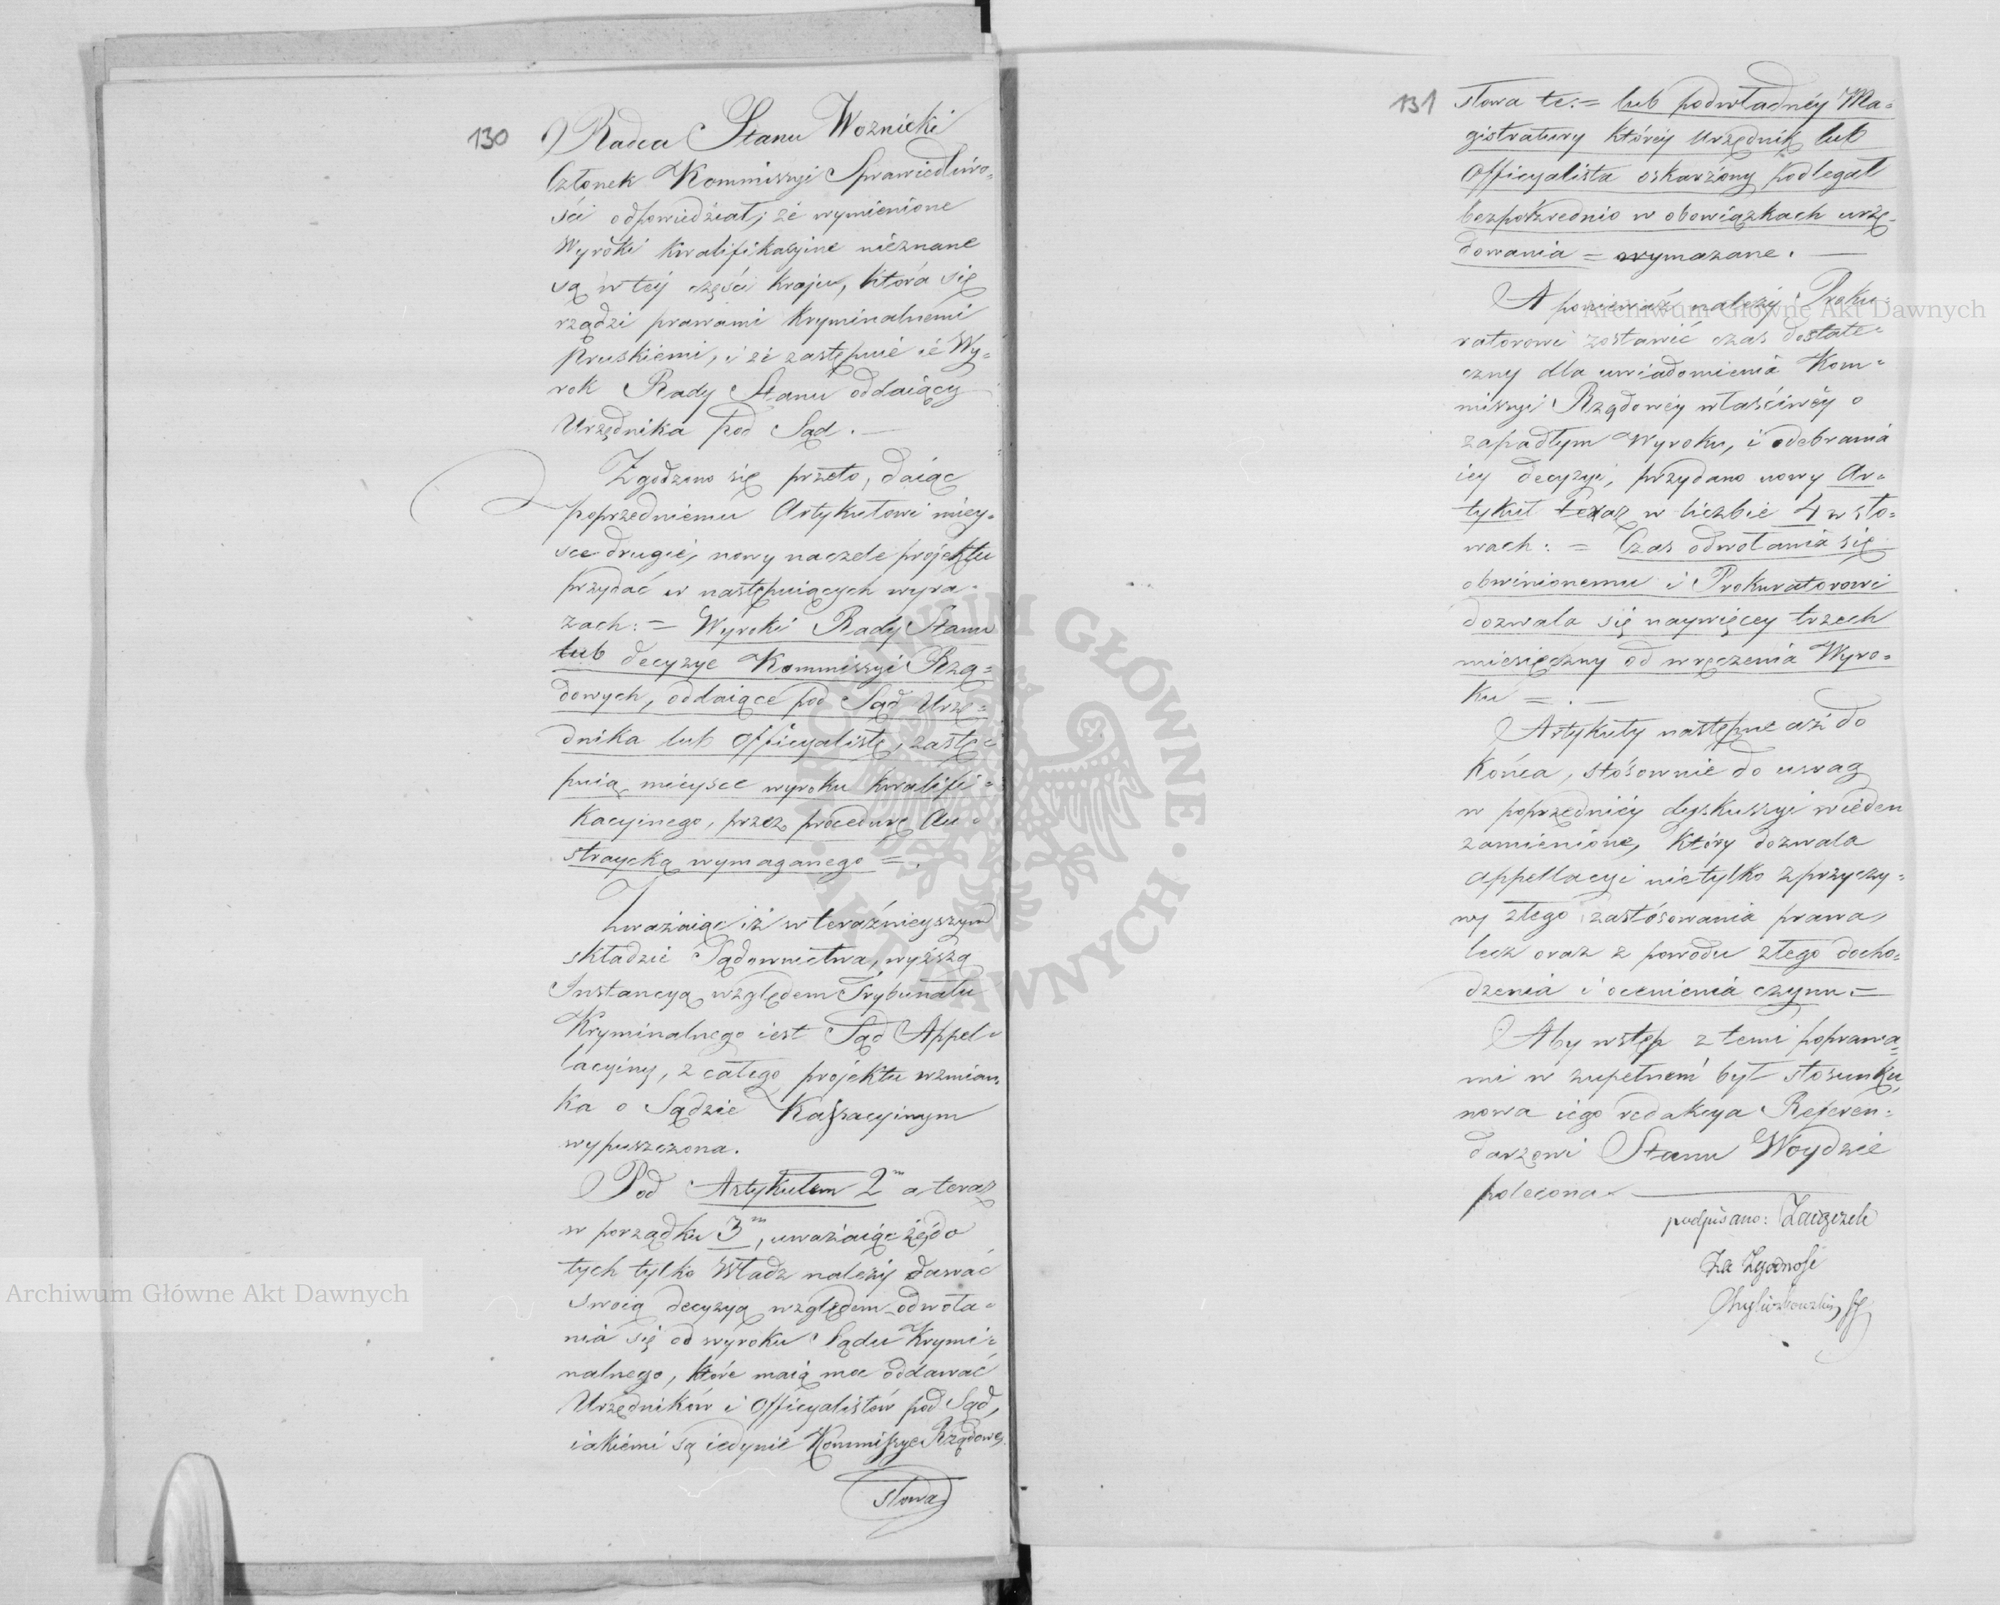 130
Radca Stanu Woznicki
Członek Kommissyi Sprawiedliwo-
ści odpowiedział; że wymienione
Wyroki kwalifikacyine nieznane
są w tey części kraju, która się
rządzi prawami kryminalnemi
Pruskiemi, i że zastępuie ie Wy-
rok Rady Stanu oddaiący
Urzędnika pod Sąd. —
Zgodzono się przeto, daiąc
poprzedniemu Artykułowi miey-
sce drugie, nowy naczele projektu
przydać w następuiących wyra-
zach: = Wyroki Rady Stanu
lub decyzye Kommissyi Rzą-
dowych, oddaiące pod Sąd Urzę-
dnika lub Officyalistę, zastę-
puią mieysce wyroku kwalifi-
kacyinego, przez procedurę Au-
stryacką wymaganego = .
Zważaiąc iż w teraźnieyszym
składzie Sądownictwa, wyższą
Instancyą względem Trybunału
Kryminalnego iest Sąd Appel-
lacyiny, z całego projektu wzmian-
ka o Sądzie Kassacyinym
wypuszczona.
Pod Artykułem 2m a teraz
w porządku 3m, uważaiąc że do
tych tylko Władz należy dawać
swoią decyzyą względem odwoła-
nia się od wyroku Sądu Krymi-
nalnego, które maią moc oddawać
Urzędników i Officyalistów pod Sąd,
iakiemi są iedynie Kommissye Rządowe,
słowa
131
słowa te: = lub podwładney Ma-
gistratury którey Urzędnik lub
Officyalista oskarżony podlegał
bezpośrzednio w obowiązkach urzę-
dowania = wymazane. —
A ponieważ należy Proku-
ratorowi zostawić czas dostate-
czny dla uwiadomienia Kom-
missyi Rządowey właściwey o
zapadłym Wyroku, i odebrania
iey decyzyi, przydano nowy Ar-
tykuł teraz w liczbie 4 w sło-
wach: = Czas odwołania się
obwinionemu i Prokuratorowi
dozwala się naywięcey trzech
miesięczny od wręczenia Wyro-
ku = . —
Artykuły następne aż do
końca, stósownie do uwag
w poprzedniey dyskussyi wieden
zamienione, który dozwala
appellacyi nietylko z przyczy-
ny złego zastósowania prawa,
lecz oraz z powodu złego docho-
dzenia i ocenienia czynu. =
Aby wstęp z temi poprawa-
mi w zupełnem był stosunku,
nowa iego redakcya Referen-
darzowi Stanu Woydzie
polecona. —
podpisano: Zaiączek
Za Zgodność
Archiwum Główne Akt Dawnych
Archiwum Główne Akt Dawnych
ARCHIWUM GŁÓWNE AKT DAWNYCH